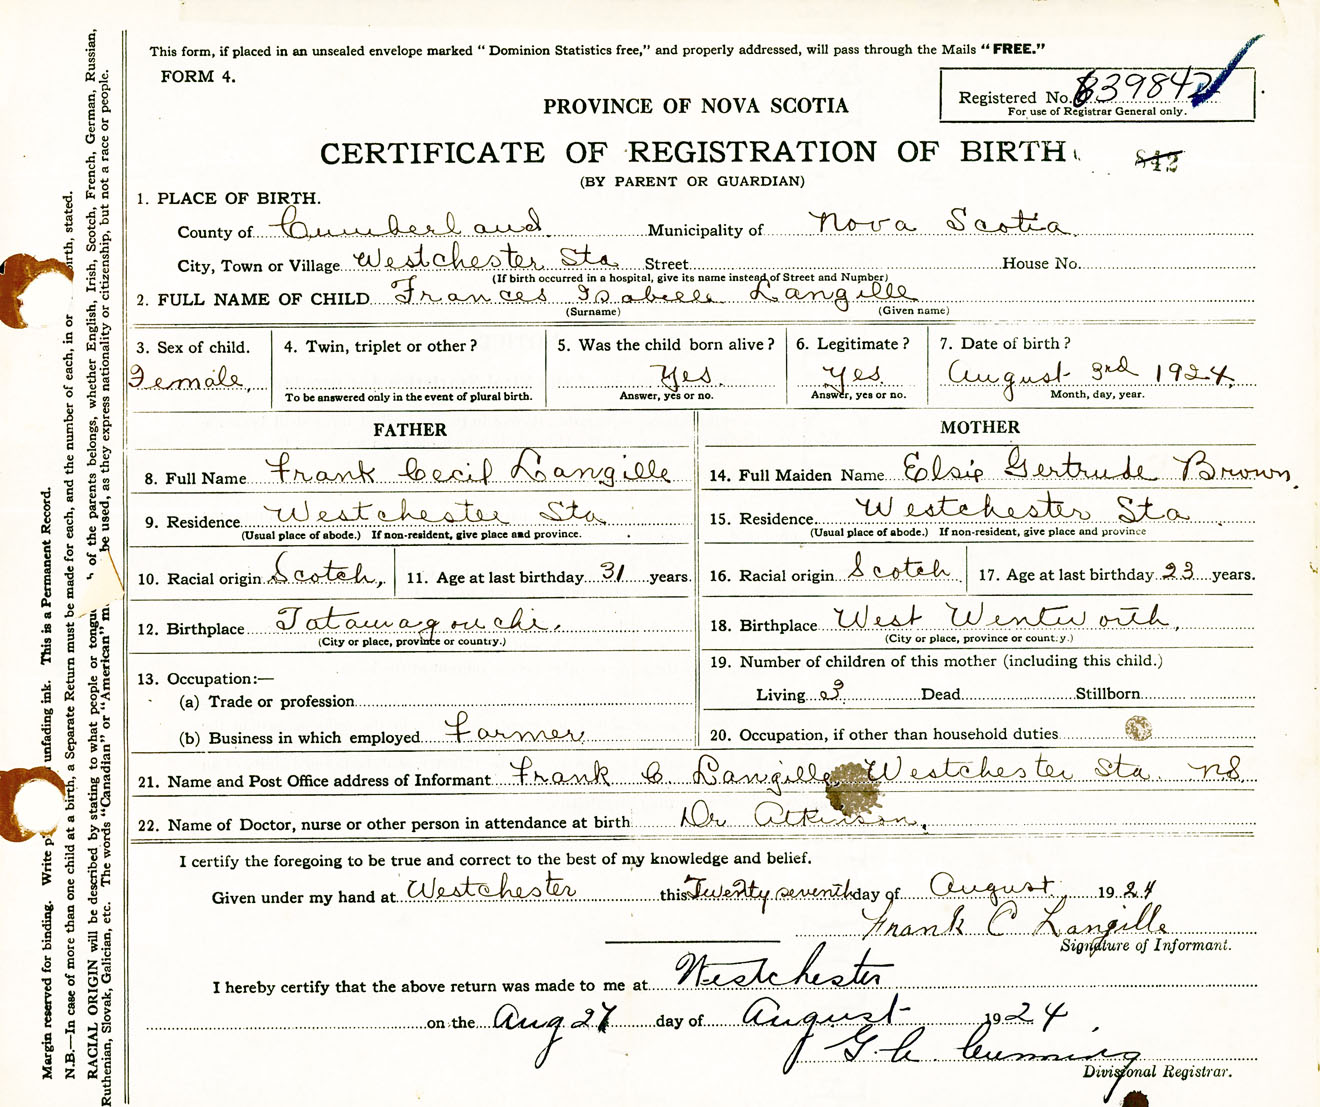 This form, if placed in an unsealed envelope marked " Dominion Statistics free," and properly addressed, will pass through the Mails " FREE."
FORM 4.
Registered No. 839842
For use of Registrar General only.
PROVINCE OF NOVA SCOTIA
CERTIFICATE OF REGISTRATION OF BIRTH
842
(BY PARENT OR GUARDIAN)
1. PLACE OF BIRTH.
County of Cumberland Municipality of Nova Scotia
City, Town or Village Westchester Sta Street House No.
(If birth occurred in a hospital, give its name instead of Street and Number)
2. FULL NAME OF CHILD Frances Isabelle Langille
(Surname) (Given name)
3. Sex of child. 4. Twin, triplet or other? 5. Was the child born alive? 6. Legitimate? 7. Date of birth?
Female, Yes. Yes August 3rd 1924.
To be answered only in the event of plural birth. Answer, yes or no. Answer, yes or no. Month, day, year.
FATHER
8. Full Name Frank Cecil Langille
9. Residence Westchester Sta
(Usual place of abode.) If non-resident, give place and province.
10. Racial origin Scotch, 11. Age at last birthday 31 years.
12. Birthplace Tatamagouche.
(City or place, province or country.)
13. Occupation:—
(a) Trade or profession
(b) Business in which employed Farmer
MOTHER
14. Full Maiden Name Elsie Gertrude Brown.
15. Residence Westchester Sta
(Usual place of abode.) If non-resident, give place and province
16. Racial origin Scotch 17. Age at last birthday 23 years.
18. Birthplace West Wentworth,
(City or place, province or county.)
19. Number of children of this mother (including this child.)
Living Dead Stillborn
20. Occupation, if other than household duties
21. Name and Post Office address of Informant Frank C Langille Westchester Sta. NS.
22. Name of Doctor, nurse or other person in attendance at birth Dr Atkinson.
I certify the foregoing to be true and correct to the best of my knowledge and belief.
Given under my hand at Westchester this Twenty seventh day of August 1924
Frank C Langille
Signature of Informant.
I hereby certify that the above return was made to me at Westchester
on the Aug 27 day of August 1924
G. C. Cumming
Divisional Registrar.
Margin reserved for binding. Write unfading ink. This is a Permanent Record.
N.B.—In case of more than one child at a birth, a Separate Return must be made for each, and the number of each, in or birth, stated.
RACIAL ORIGIN will be described by stating to what people or tongue of the parents belongs, whether English, Irish, Scotch, French, German, Russian,
Ruthenian, Slovak, Galician, etc. The words "Canadian" or "American" be used, as they express nationality or citizenship, but not a race or people.